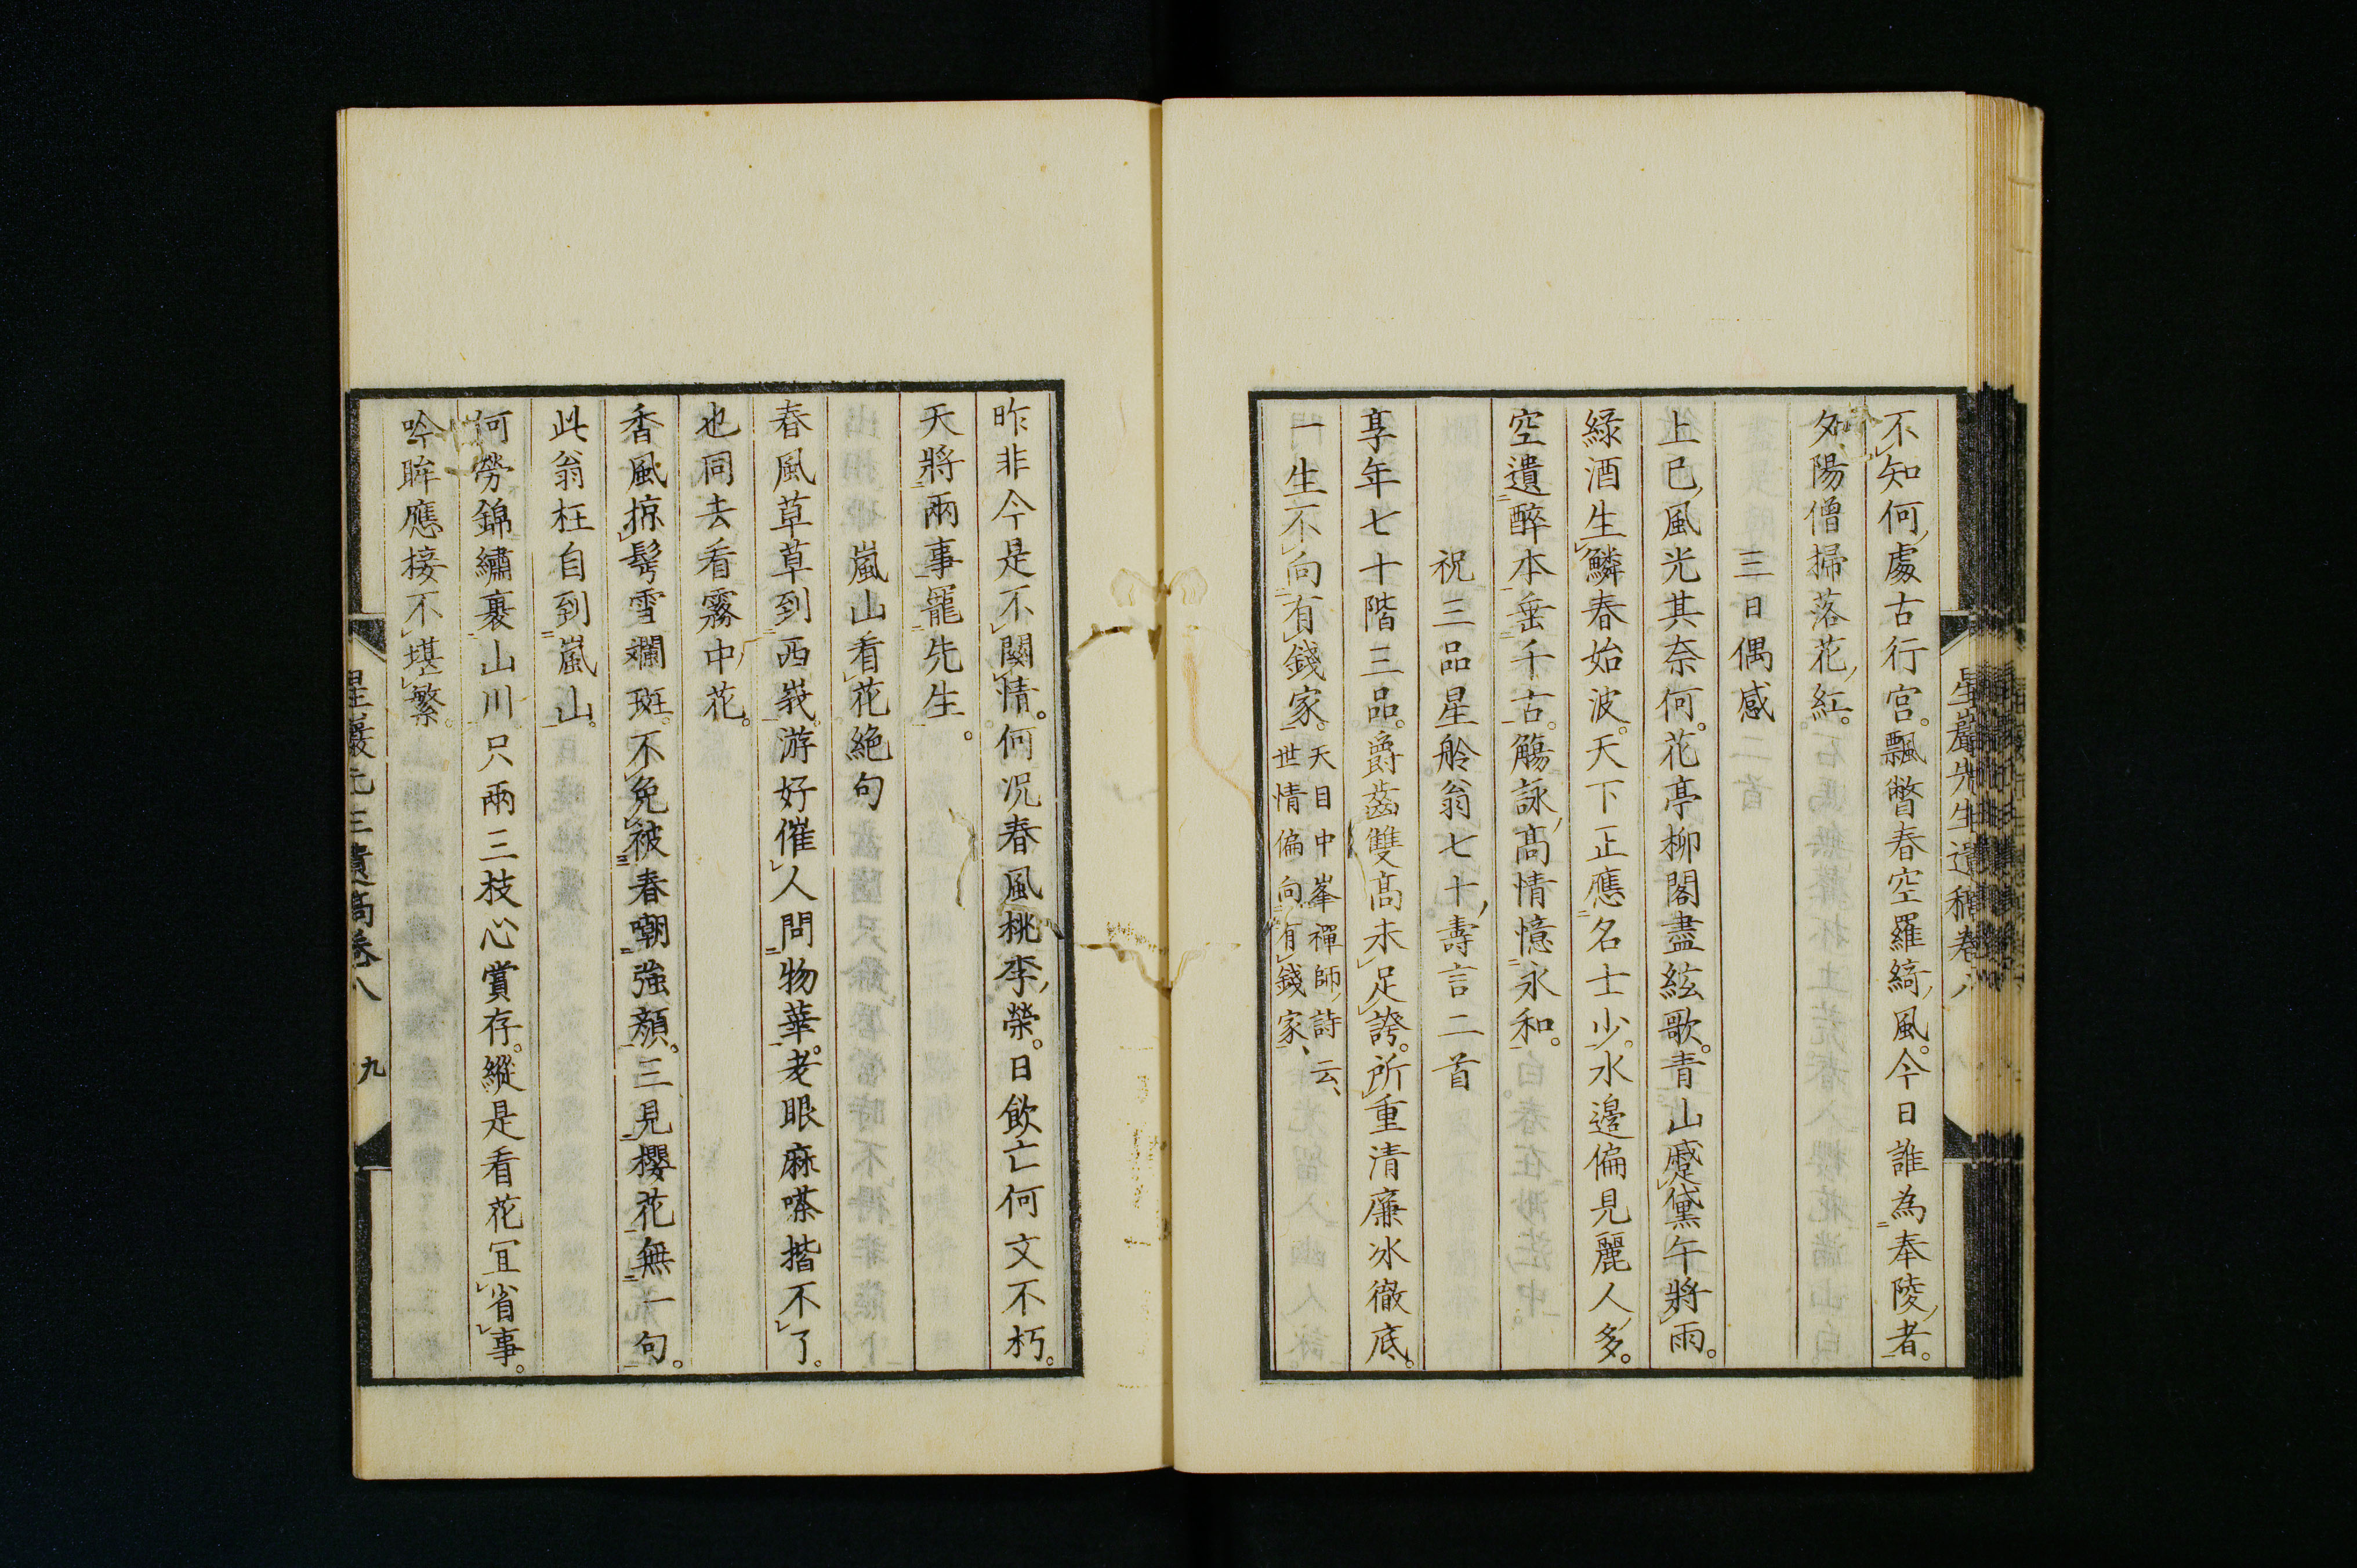 星巖先生遺稿卷八
不知何處古行宮。飄瞥春空羅綺風。今日誰為奉陵者。
夕陽僧掃落花紅。
三日偶感
上巳風光其奈何。花亭柳閣盡絃歌。青山蹙黛午將雨。
綠酒生鱗春始波。天下正應名士少。水邊偏見麗人多。
空遺醉本垂千古。觴詠高情憶永和。
祝三品星舲翁七十壽言二首
享年七十階三品。爵齒雙高未足誇。所重清廉冰徹底。
一生不向有錢家。天目中峯禪師詩云、
世情偏向有錢家、
昨非今是不關情。何況春風桃李榮。日飲亡何文不朽。
天將兩事寵先生。
嵐山看花絕句
春風草草到西峩。游好催人問物華。老眼麻嗏揩不了。
也同去看霧中花。
香風掠髩雪斕斑。不免被春嘲強顏。三見櫻花無一句。
此翁枉自到嵐山。
何勞錦繡裹山川。只兩三枝心賞存。縱是看花宜省事。
吟眸應接不堪繁。
星巖先生遺稿卷八 九